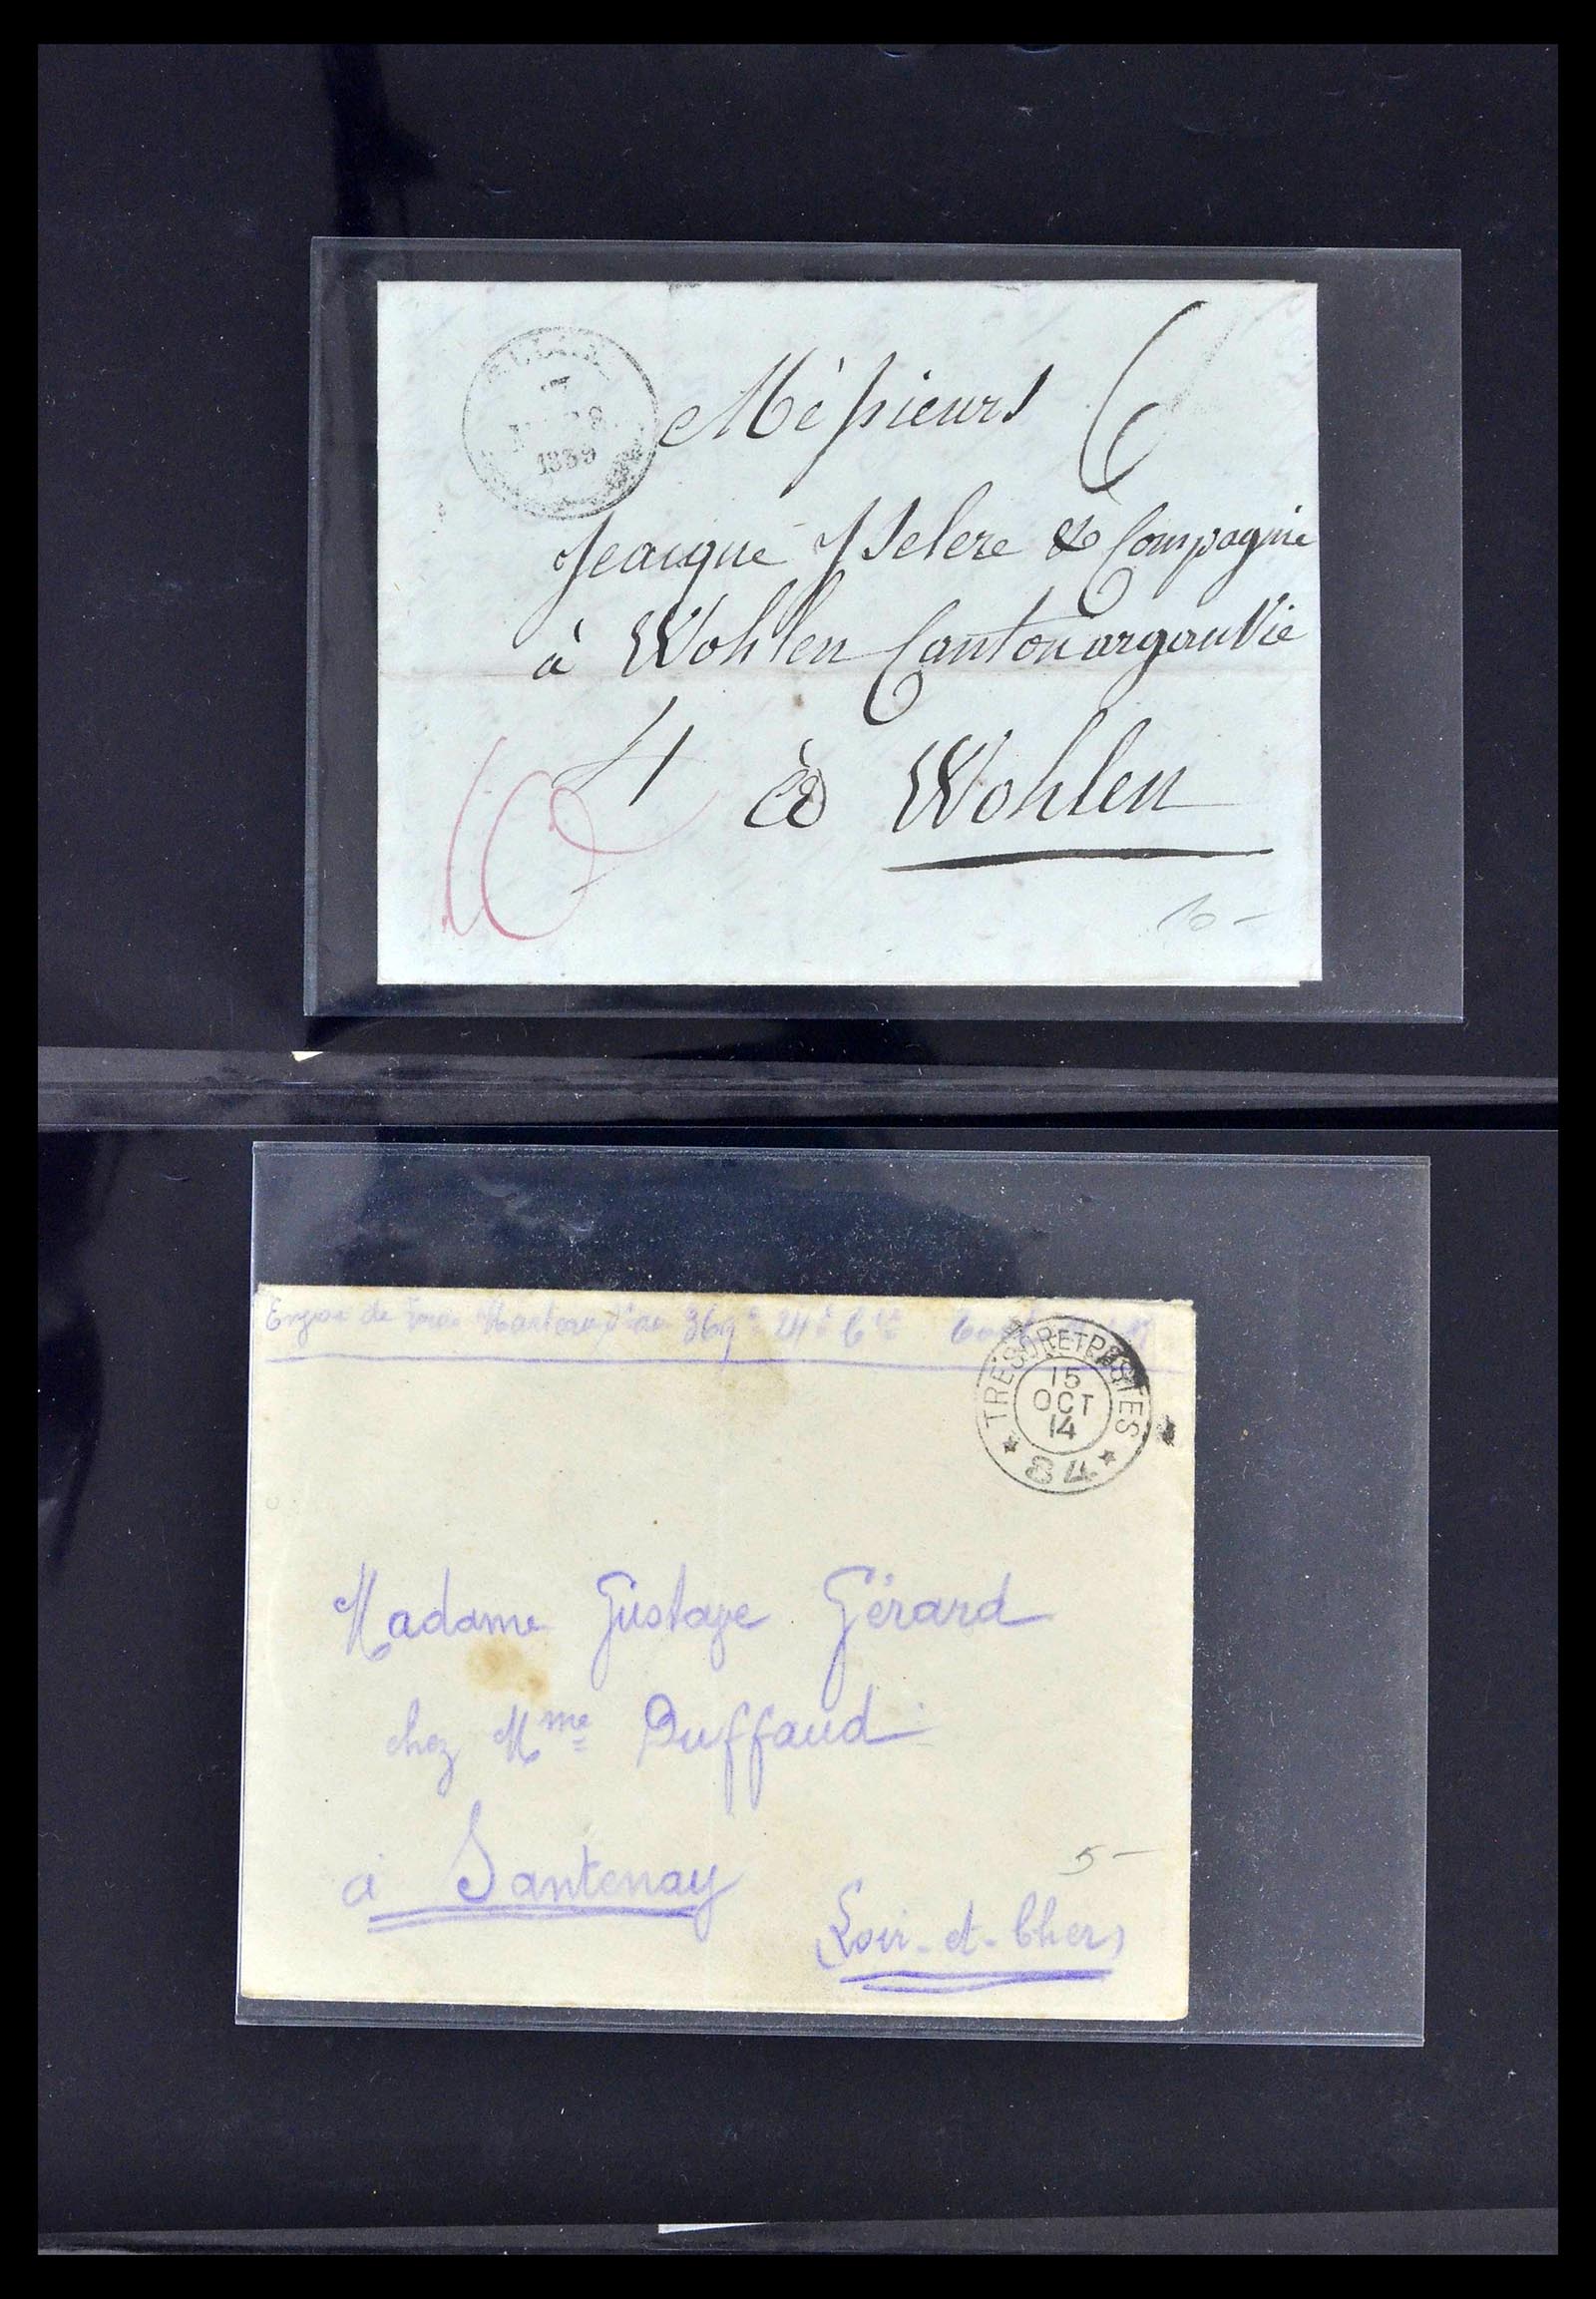 1839
Mèssieurs 6
Jeaique Iselere & Compagnie
à Wohlen Canton argauvie
4 à Wohlen
10
10 -
Envoi de 369e 24e Cie
TRESOR ET POSTES
15
OCT
14
* 84 *
Madame Gustave Gérard
chez Mme Duffaud
5 -
à Santenay
Loir-et-Cher